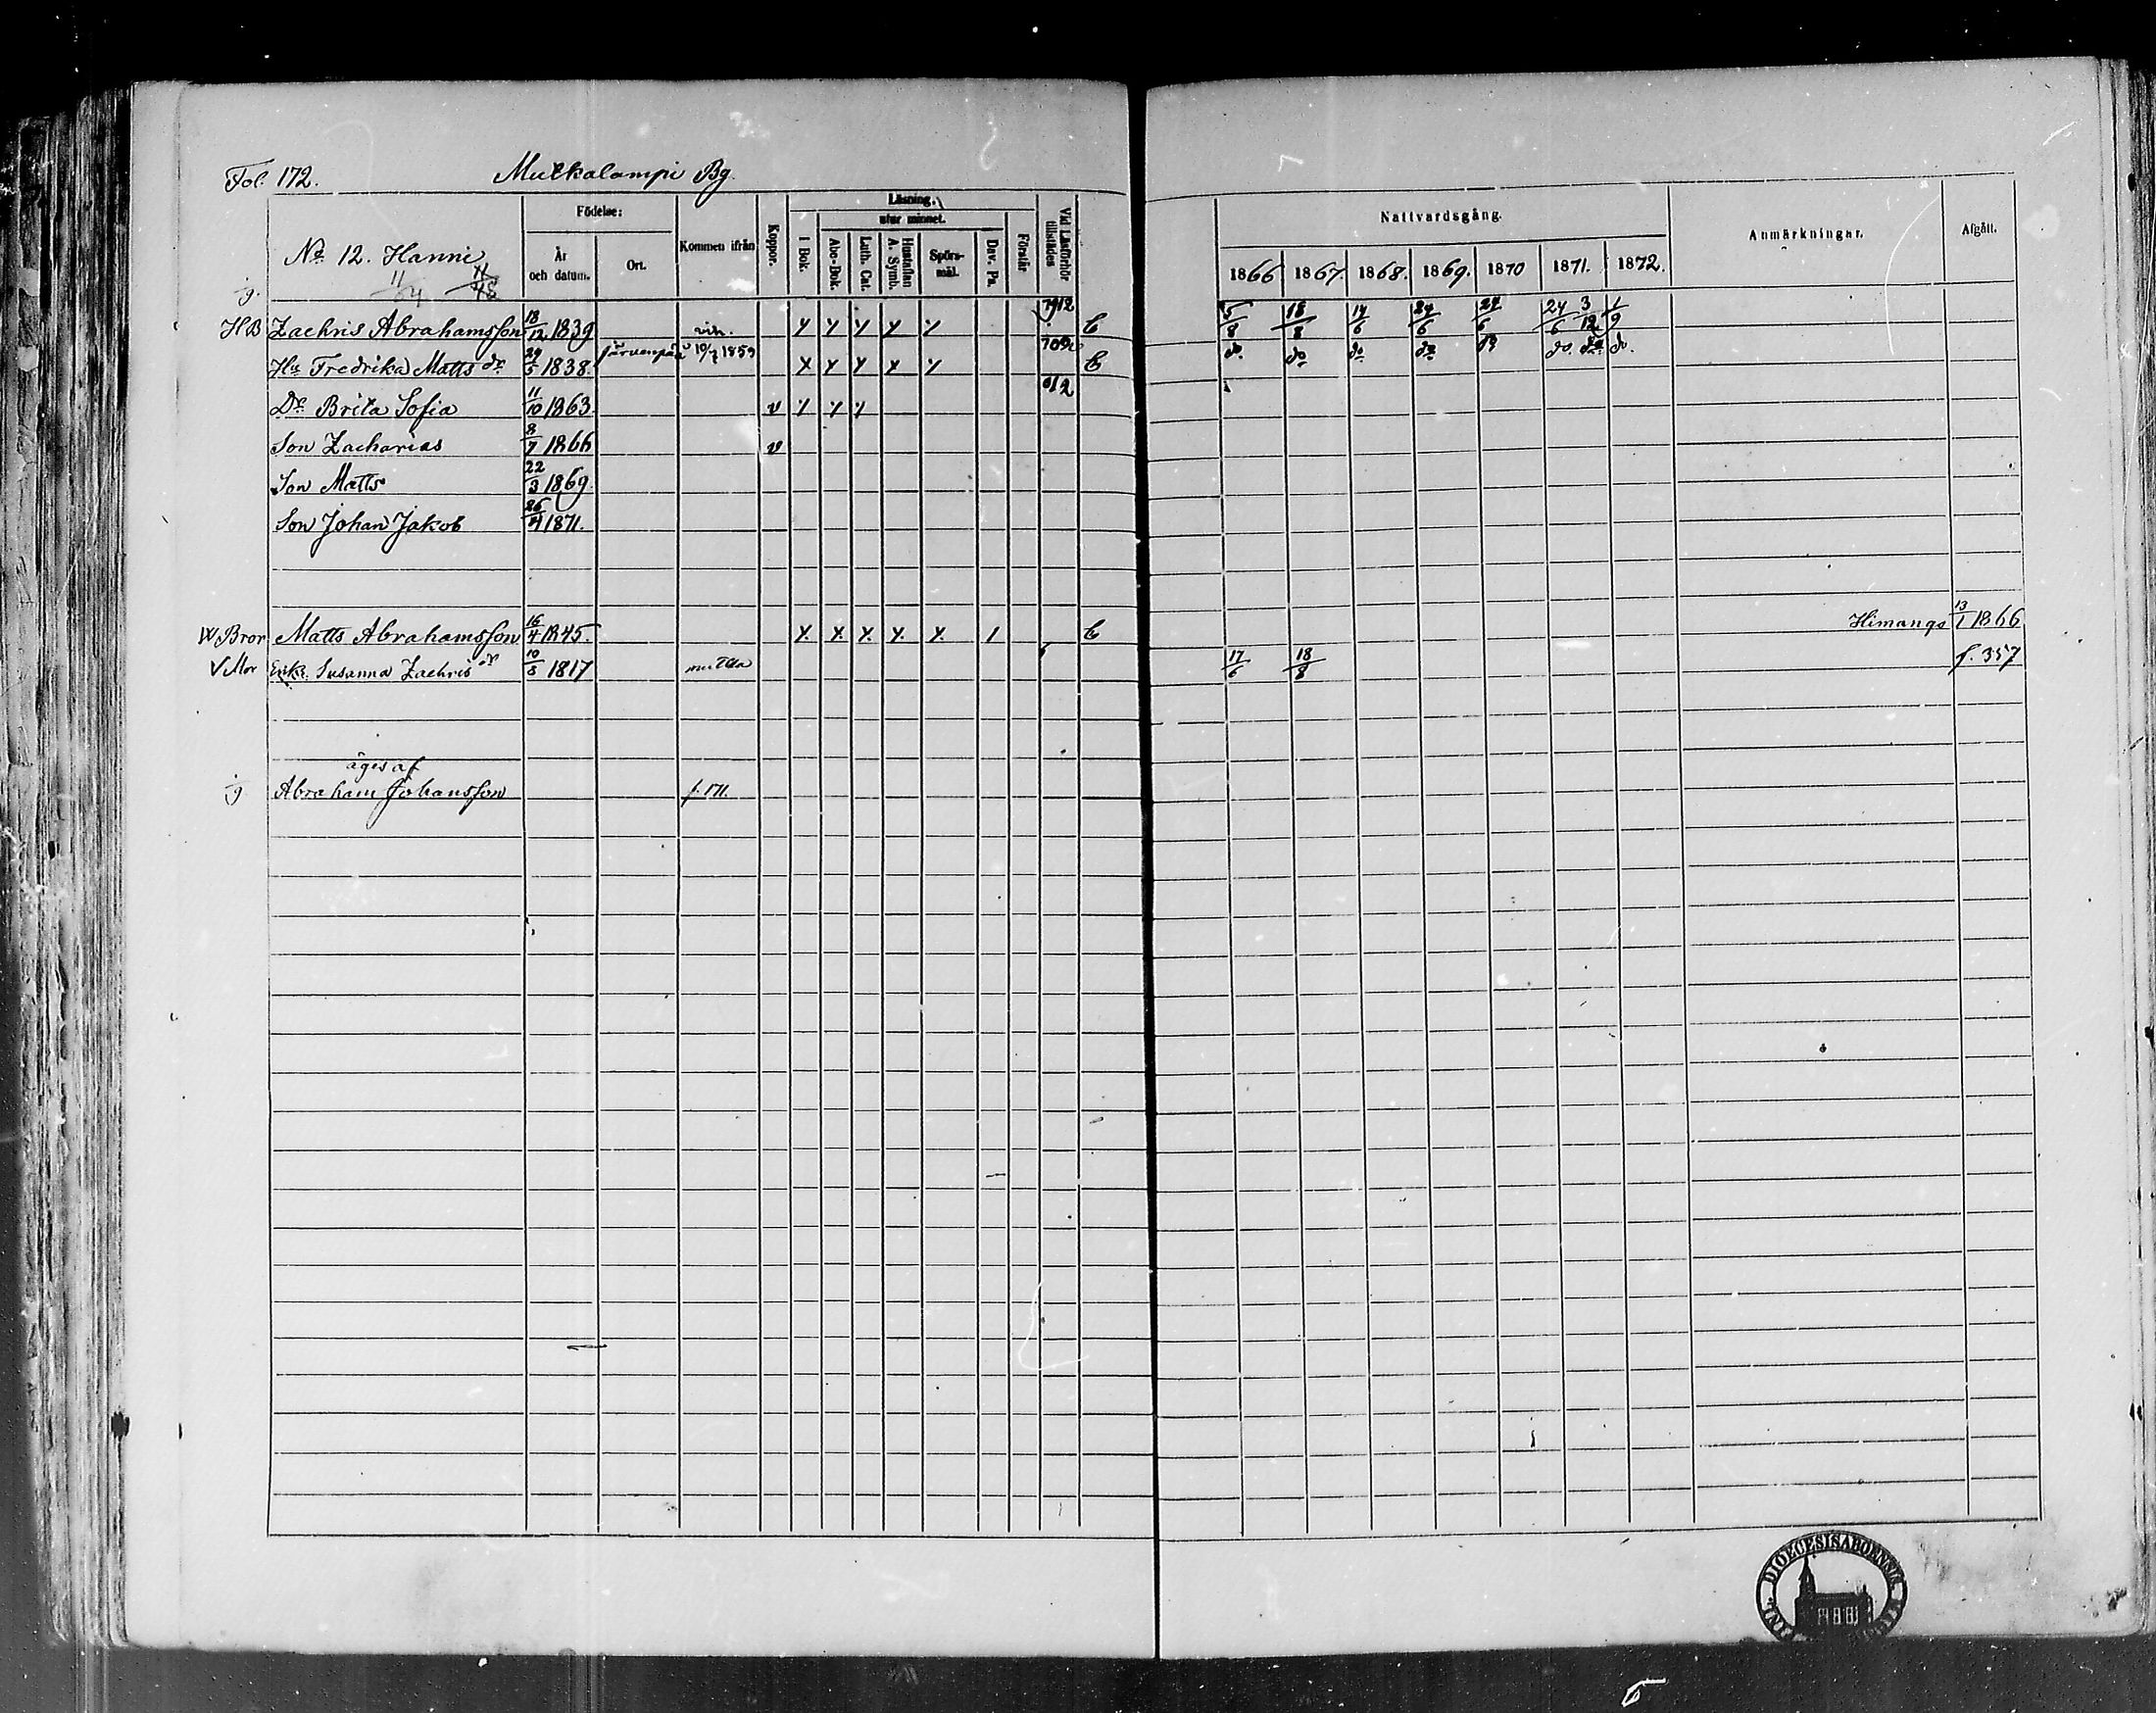 Fol. 172. Mutkalampi By.
Födelse: Läsning.
utur minnet.
Nattvardsgång.
Nº 12. Hanni År och datum. Ort. Kommen ifrån Koppor. I Bok. Abc-Bok. Luth. Cat. Hustaflan A. Symb. Spörs-mål. Dav. Ps. Förstår Vid Läsförhör tillstädes 1866 1867. 1868. 1869. 1870 1871. 1872. Anmärkningar. Afgått.
11/64 11/48
HB Zachris Abrahamsson 18/12 1839 5/8 18/8 14/6 24/6 24/6 24/6 3/12 1/9
Hu Fredrika Matts dr 29/5 1838. Järvenpää 10/7 1859 do. do do do do do. do do.
Dr Brita Sofia 11/10 1863 v
Son Zacharias 8/7 1866 v
Son Matts 22/3 1869.
Son Johan Jakob 26/4 1871.
W Bror Matts Abrahamsson 16/4 1845. X X X X X 1 Himango 13/1 1866
V Mor Enka Susanna Zachris dr 10/3 1817 17/6 18/8 f. 357
äges af
Abraham Johansson f. 171.
DIOECESIS ABOENSIS